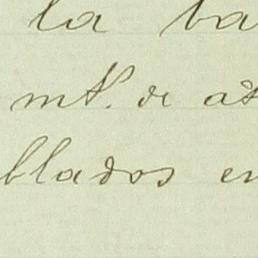 la ba
mt. de at
blados en